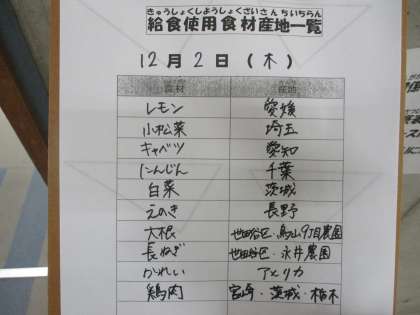 きゅうしょくしようしょくざいさんちいちらん
給食使用食材産地一覧
12月2日(木)
食材 産地
レモン 愛媛
小松菜 埼玉
キャベツ 愛知
にんじん 千葉
白菜 茨城
えのき 長野
大根 世田谷区・烏山9丁目農園
長ねぎ 世田谷区・永井農園
かれい アメリカ
鶏肉 宮崎・茨城・栃木